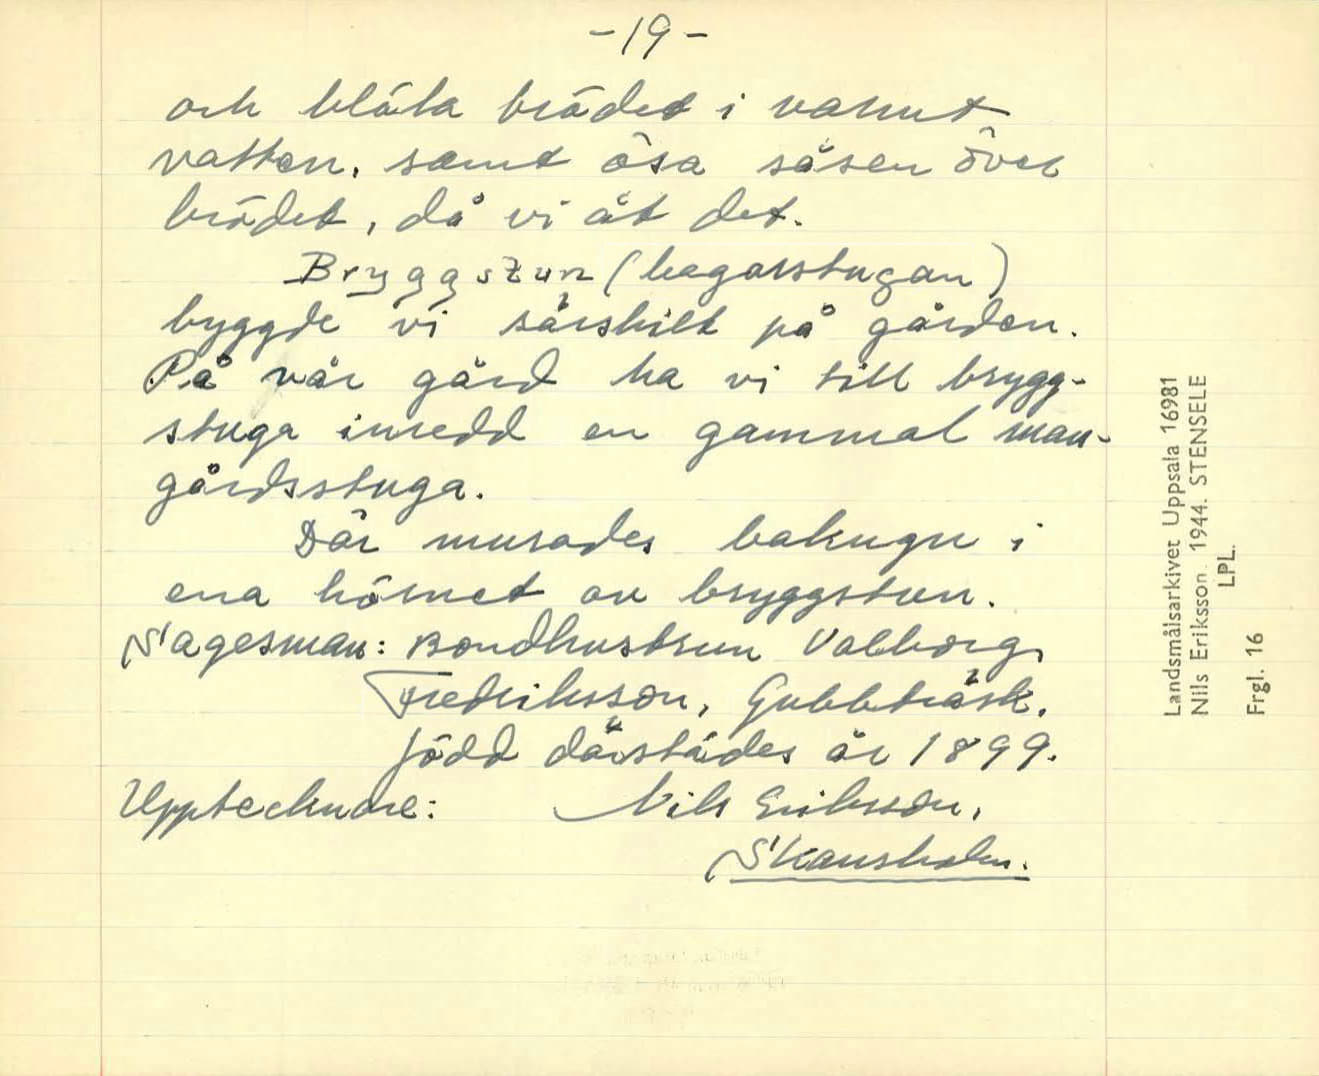 -19-
och blöta brödet i varmt
vatten, samt ösa såsen över
brödet, då vi åt det.
Bryggstun (bagarstugan)
byggde vi särskilt på gården.
På vår gård ha vi till brygg-
stuga inredd en gammal man-
gårdsstuga.
Där murades bakugn i
ena hörnet av bryggstun.
Sagesman: Bondhustrun Valborg
Fredriksson, Gubbträsk.
född därstädes år 1899.
Upptecknare: Nils Eriksson,
Skansholm.
Landsmålsarkivet Uppsala 16981
Nils Eriksson. 1944. STENSELE
LPL.
Frgl. 16